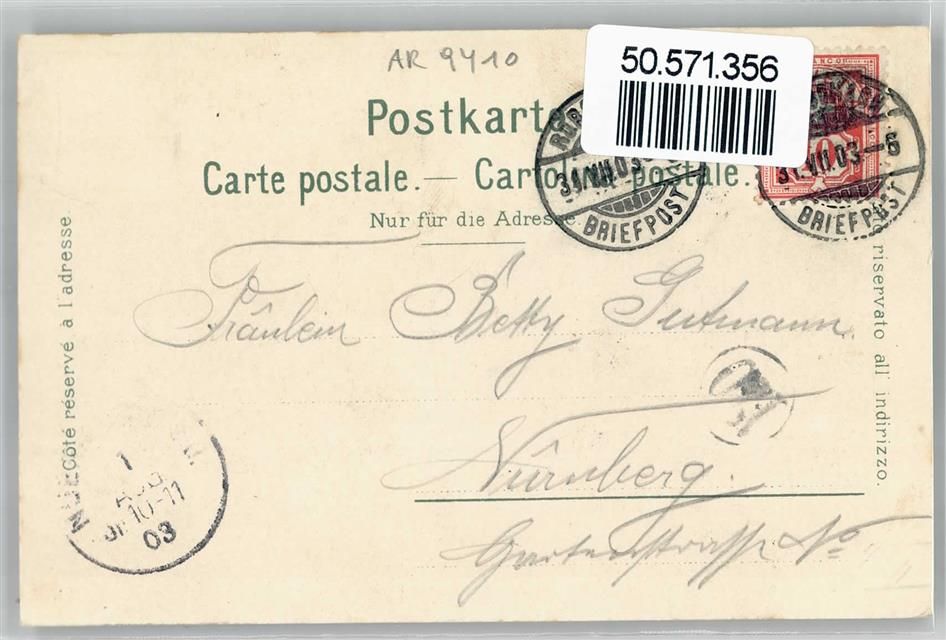 AR 9410
50.571.356
Postkarte
Carte postale. — Cartolina postale.
Nur für die Adresse.
31.VII.03
BRIEFPOST
31.VII.03-6
BRIEFPOST
Côté réservé à l'adresse.
riservato all indirizzo.
Fräulein Betty Gutmann
T
Nürnberg.
Gartenstrasse No
1
AUG
10-11
03